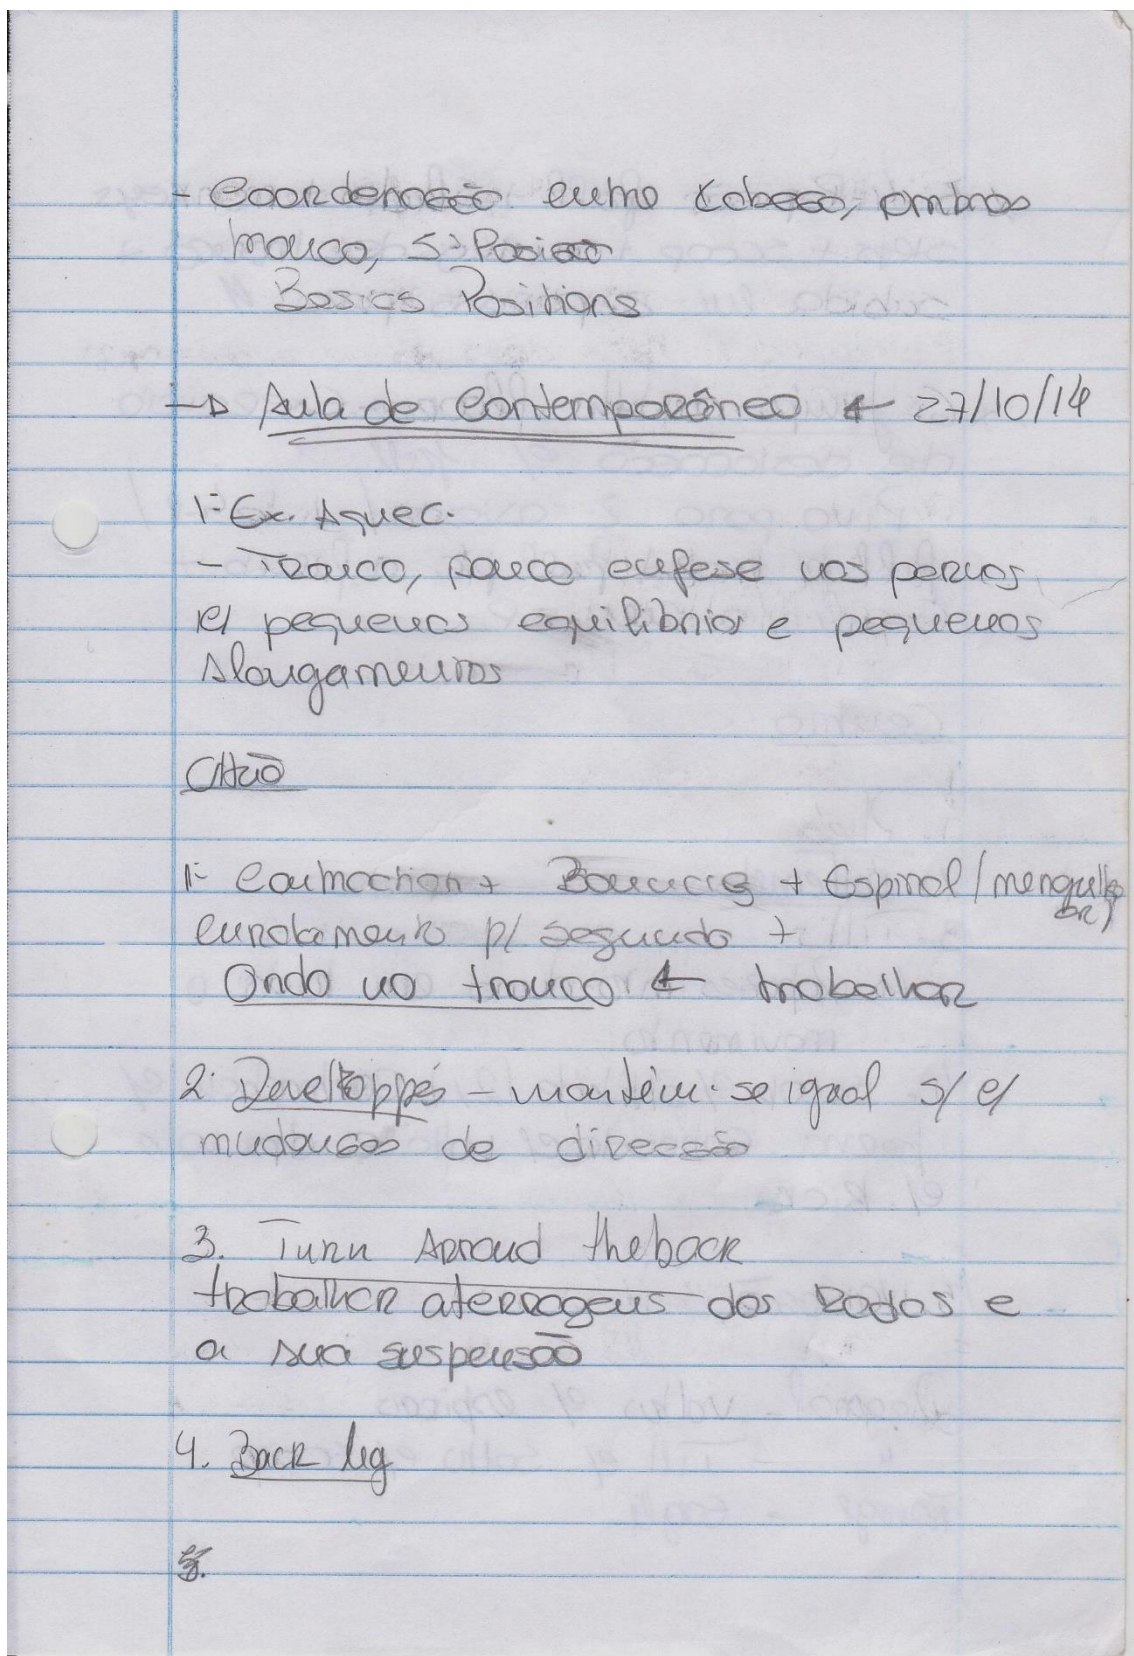 - Coordenação entre cabeça, ombros
tronco, 5ª Posição
Basics Positions
→ Aula de Contemporâneo ← 27/10/14
1- Ex. Aquec.
- Tronco, pouca enfese nas pernas
c/ pequenos equilibrios e pequenos
Alongamentos
Chão
1- Contraction + Bounces + Espiral (mergulho
enrolamento p/ segunda +
Onda no tronco ← trabalhar
2. Developpés - mantém-se igual s/ e/
mudanças de direcção
3. Turn Arroud the back
trabalhar aterragens dos Rodos e
a sua suspensão
4. Back leg
5.